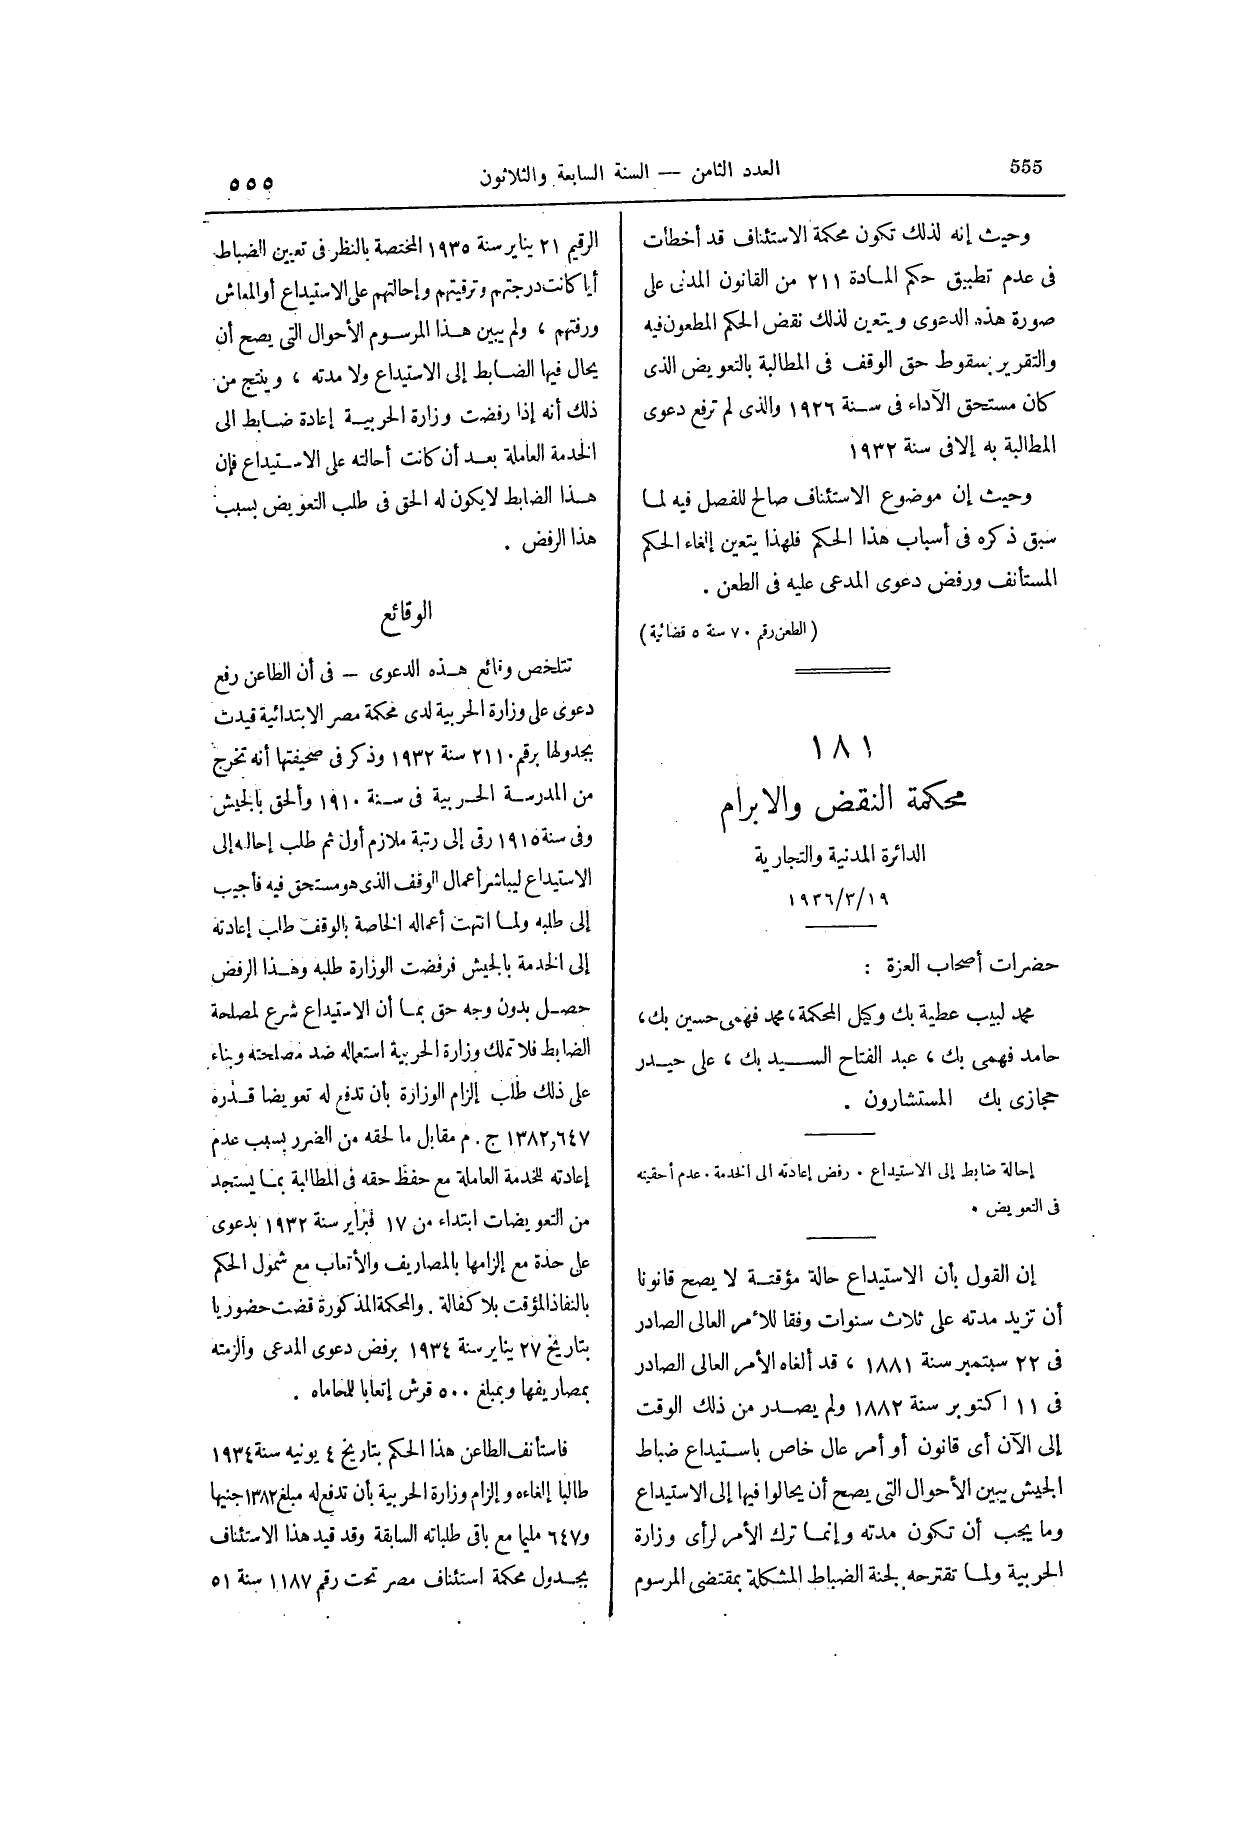 555
العدد الثامن — السنة السابعة والثلاثون
٥٥٥
وحيث إنه لذلك تكون محكمة الاستئناف قد أخطأت
فى عدم تطبيق حكم المادة ٢١١ من القانون المدنى على
صورة هذه الدعوى ويتعين لذلك نقض الحكم المطعون فيه
والتقرير بسقوط حق الوقف فى المطالبة بالتعويض الذى
كان مستحق الأداء فى سنة ١٩٢٦ والذى لم ترفع دعوى
المطالبة به إلا فى سنة ١٩٣٢
وحيث إن موضوع الاستئناف صالح للفصل فيه لما
سبق ذكره فى أسباب هذا الحكم فلهذا يتعين إلغاء الحكم
المستأنف ورفض دعوى المدعى عليه فى الطعن .
( الطعن رقم ٧٠ سنة ٥ قضائية )
١٨١
محكمة النقض والابرام
الدائرة المدنية والتجارية
١٩٣٦/٣/١٩
حضرات أصحاب العزة :
محمد لبيب عطية بك وكيل المحكمة ، محمد فهمى حسين بك ،
حامد فهمى بك ، عبد الفتاح السيد بك ، على حيدر
حجازى بك المستشارون .
إحالة ضابط إلى الاستيداع . رفض إعادته الى الخدمة . عدم أحقيته
فى التعويض .
إن القول بأن الاستيداع حالة مؤقتة لا يصح قانونا
أن تزيد مدته على ثلاث سنوات وفقا للأمر العالى الصادر
فى ٢٢ سبتمبر سنة ١٨٨١ ، قد ألغاه الأمر العالى الصادر
فى ١١ اكتوبر سنة ١٨٨٢ ولم يصدر من ذلك الوقت
إلى الآن أى قانون أو أمر عال خاص باستيداع ضباط
الجيش يبين الأحوال التى يصح أن يحالوا فيها إلى الاستيداع
وما يجب أن تكون مدته وإنما ترك الأمر لرأى وزارة
الحربية ولما تقترحه لجنة الضباط المشكلة بمقتضى المرسوم
الرقيم ٢١ يناير سنة ١٩٣٥ المختصة بالنظر فى تعيين الضباط
أيا كانت درجتهم وترقيتهم وإحالتهم على الاستيداع أو المعاش
ورفتهم ، ولم يبين هذا المرسوم الأحوال التى يصح أن
يحال فيها الضابط إلى الاستيداع ولا مدته ، وينتج من
ذلك أنه إذا رفضت وزارة الحربية إعادة ضابط الى
الخدمة العاملة بعد أن كانت أحالته على الاستيداع فإن
هذا الضابط لا يكون له الحق فى طلب التعويض بسبب
هذا الرفض .
الوقائع
تتلخص وقائع هذه الدعوى — فى أن الطاعن رفع
دعوى على وزارة الحربية لدى محكمة مصر الابتدائية قيدت
بجدولها برقم ٢١١٠ سنة ١٩٣٢ وذكر فى صحيفتها أنه تخرج
من المدرسة الحربية فى سنة ١٩١٠ وألحق بالجيش
وفى سنة ١٩١٥ رقى إلى رتبة ملازم أول ثم طلب إحاله إلى
الاستيداع ليباشر أعمال الوقف الذى هو مستحق فيه فأجيب
إلى طلبه ولما انتهت أعماله الخاصة بالوقف طلب إعادته
إلى الخدمة بالجيش فرفضت الوزارة طلبه وهذا الرفض
حصل بدون وجه حق بما أن الاستيداع شرع لمصلحة
الضابط فلا تملك وزارة الحربية استعماله ضد مصلحته وبناء
على ذلك طلب إلزام الوزارة بأن تدفع له تعويضا قدره
١٣٨٢,٦٤٧ ج . م مقابل ما لحقه من الضرر بسبب عدم
إعادته للخدمة العاملة مع حفظ حقه فى المطالبة بما يستجد
من التعويضات ابتداء من ١٧ فبراير سنة ١٩٣٢ بدعوى
على حدة مع إلزامها بالمصاريف والأتعاب مع شمول الحكم
بالنفاذ المؤقت بلا كفالة . والمحكمة المذكورة قضت حضوريا
بتاريخ ٢٧ يناير سنة ١٩٣٤ برفض دعوى المدعى وألزمته
بمصاريفها وبمبلغ ٥٠٠ قرش إتعابا للمحاماه .
فاستأنف الطاعن هذا الحكم بتاريخ ٤ يونيه سنة ١٩٣٤
طالبا إلغاءه وإلزام وزارة الحربية بأن تدفع له مبلغ ١٣٨٢ جنيها
و٦٤٧ مليما مع باقى طلباته السابقة وقد قيد هذا الاستئناف
بجدول محكمة استئناف مصر تحت رقم ١١٨٧ سنة ٥١